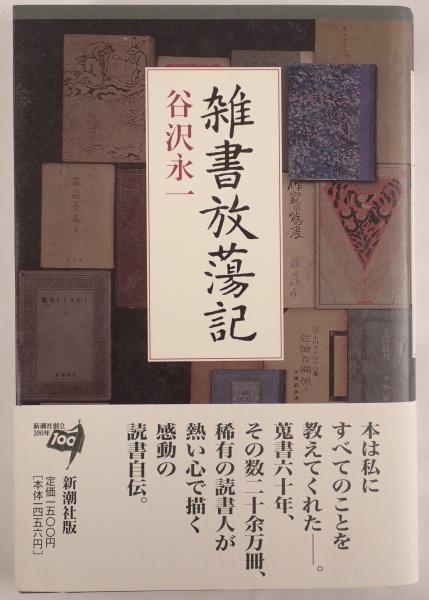 雑書放蕩記
谷沢永一
作家の態度
危険な関係
本は私に
すべてのことを
教えてくれた――。
蒐書六十年、
その数二十余万冊、
稀有の読書人が
熱い心で描く
感動の
読書自伝。
新潮社創立
100年
100
新潮社版
定価一五〇〇円
［本体一四五六円］